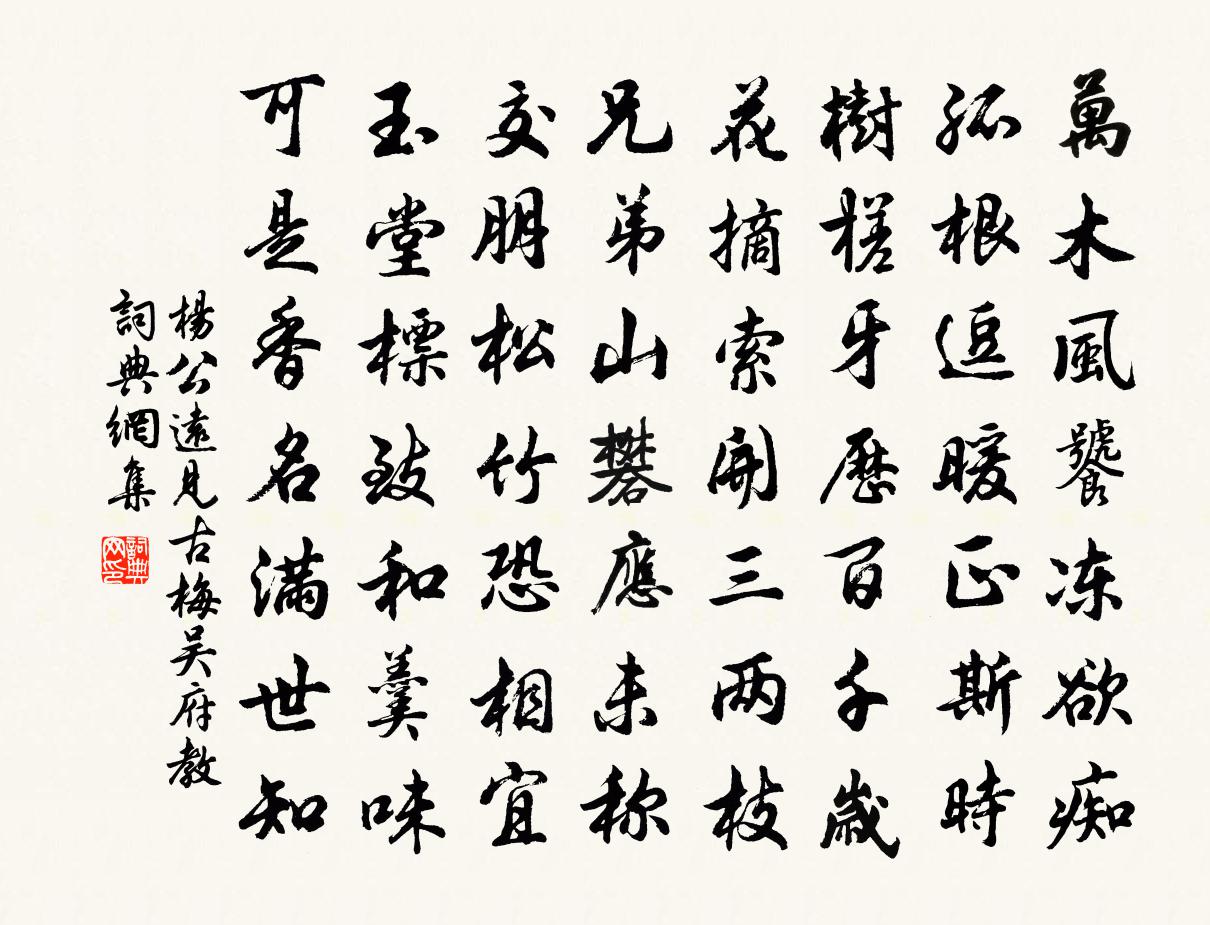 萬木風饕冻欲痴
孤根逗暖正斯時
樹槎牙歷百千歲
花摘索開三两枝
兄弟山礬應未称
交朋松竹恐相宜
玉堂標致和羹味
可是香名滿世知
楊公遠見古梅吴府教
詞典網集
詞典网印